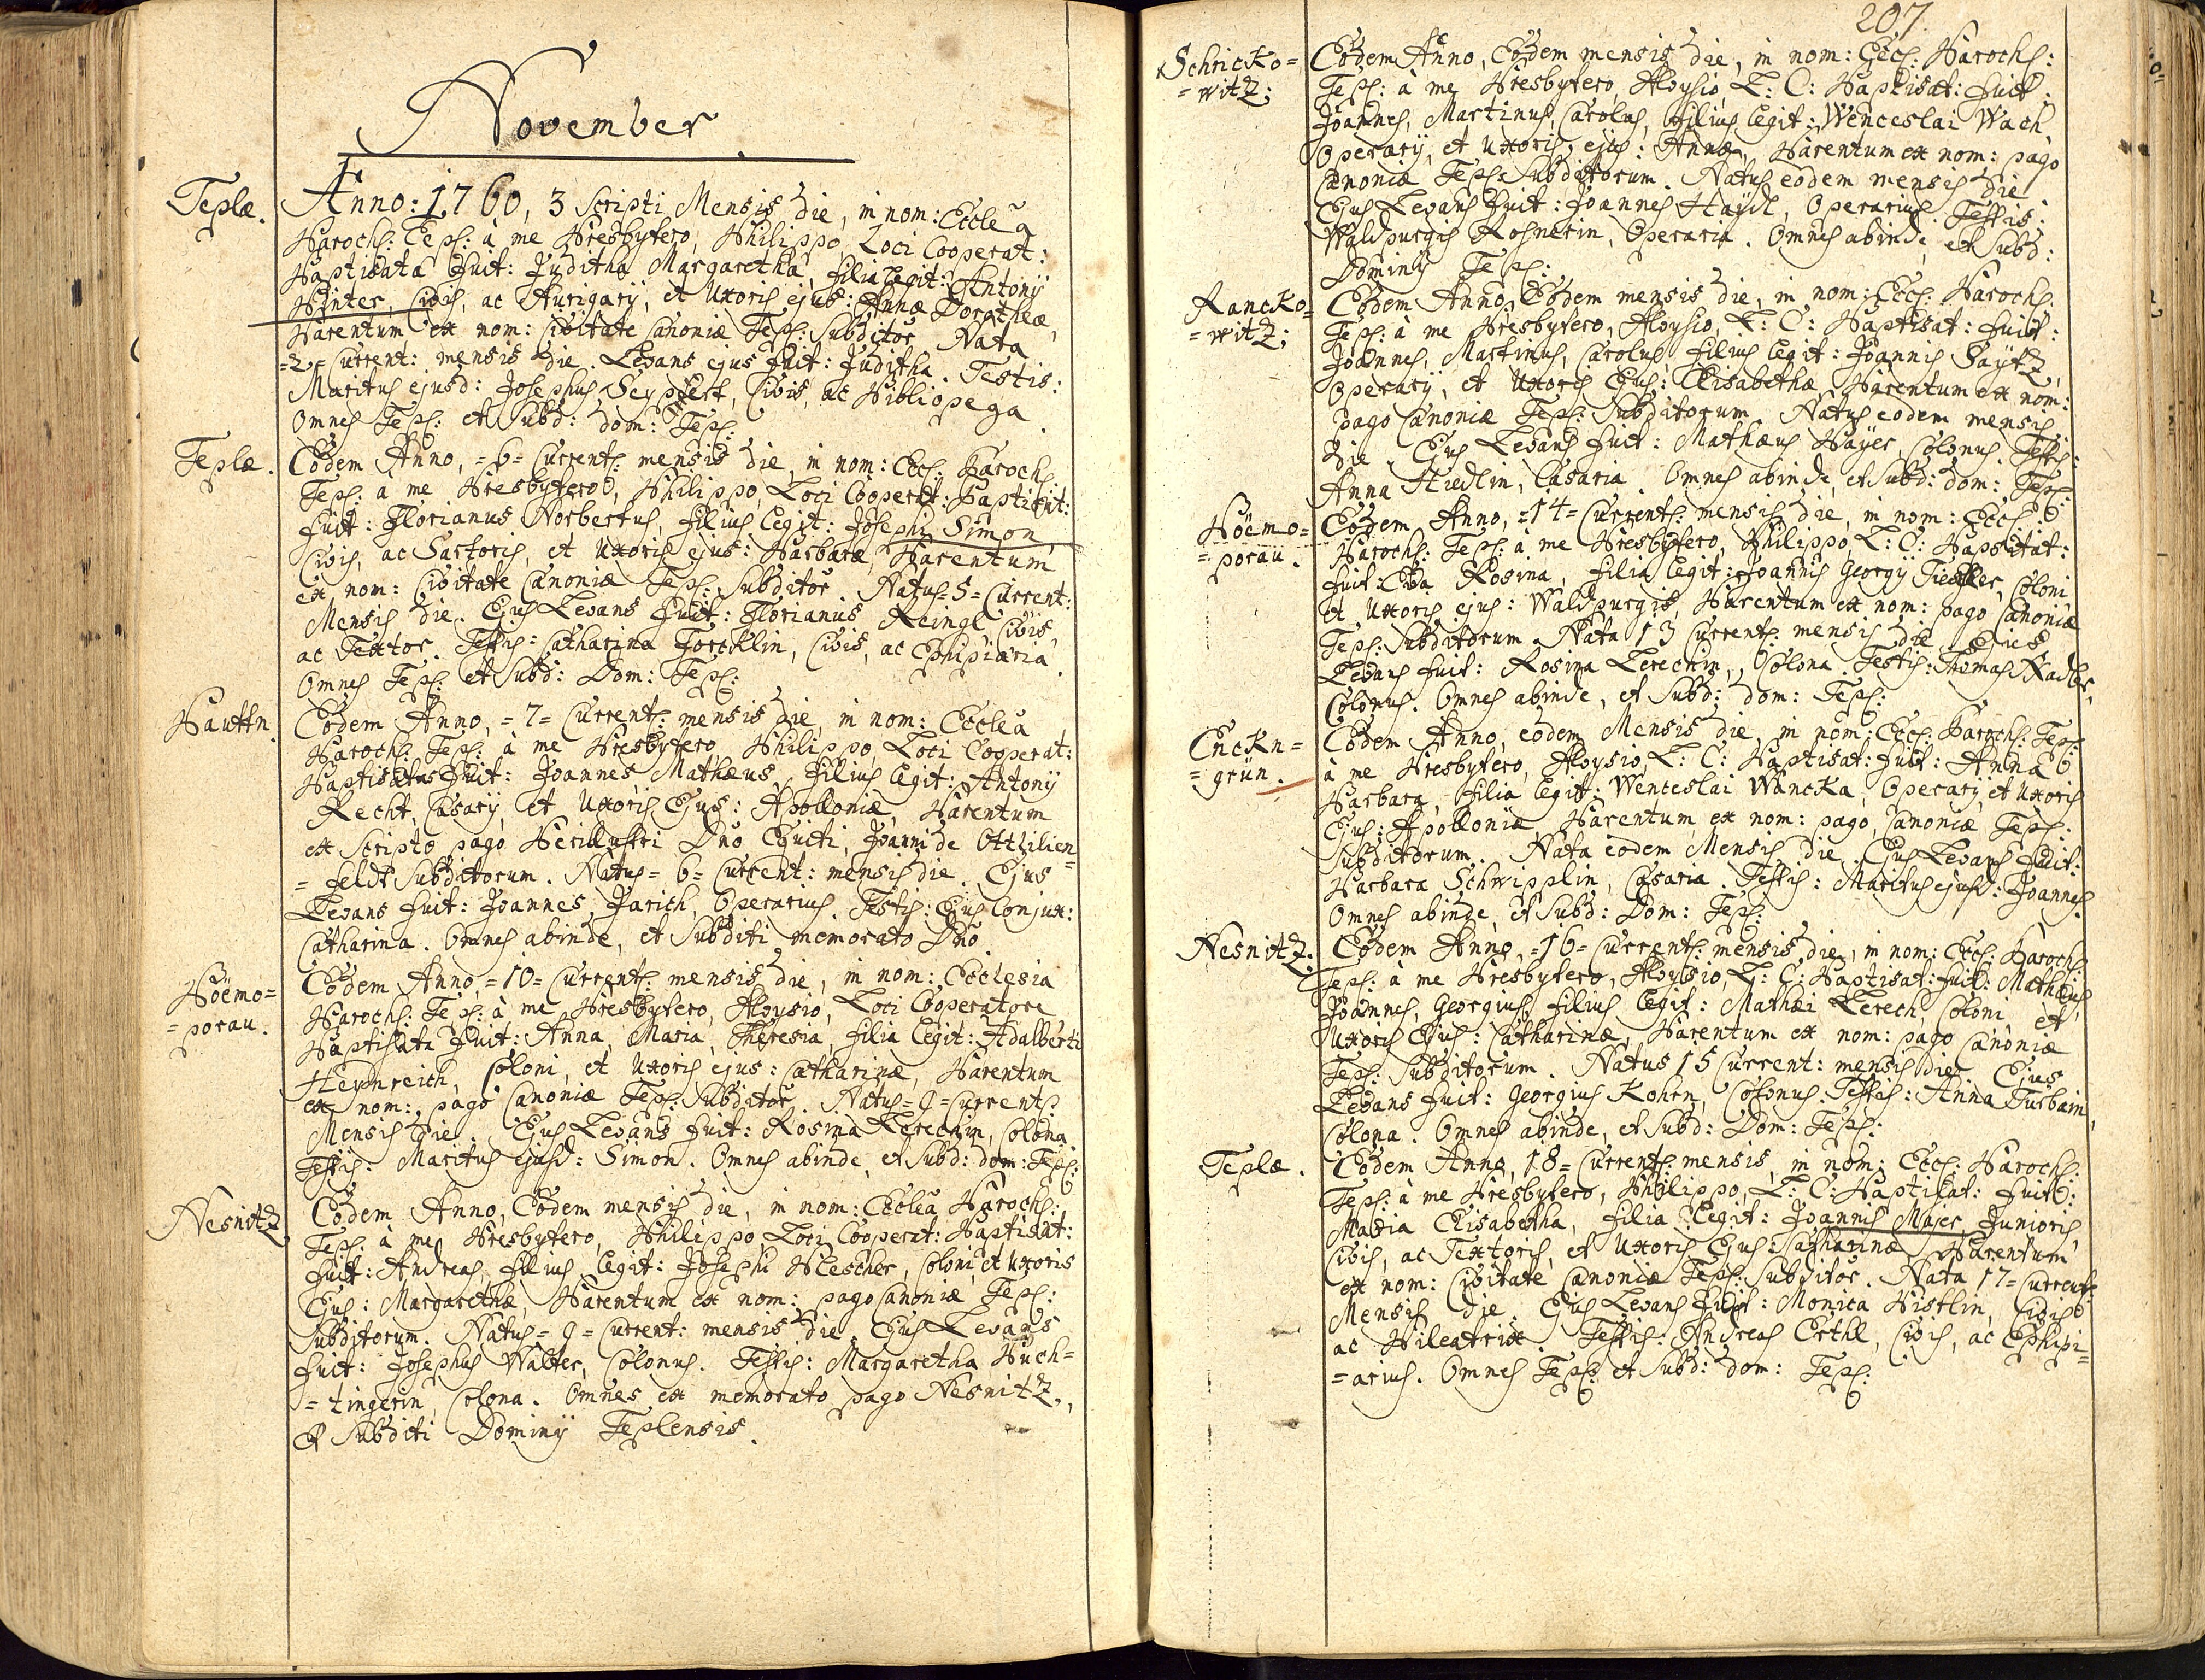 November
Teplæ.
Anno: 1760, 3 Scripti Mensis die, in nom: Eccleã
Paroch: Tepl: à me Presbytero, Philippo, Loci Cooperat:
Baptisata fuit: Juditha Margaretha, filia legit: Antonÿ
Pinter, Civis, ac Aurigarÿ, et Uxoris ejus: Annæ Dorotheæ,
Parentum ex nom: Civitate Canoniæ Tepl: Subditor Nata
=2= Current: mensis die. Levans ejus fuit: Juditha. Testis:
Maritus ejusd: Josephus Seypfert, Civis, ac Bibliopega.
Omnes Tepl: et Subd: dom: Tepl:
Teplæ.
Eodem Anno, =6= Current: mensis die, in nom: Eccl: Paroch:
Tepl: à me Presbytero, Philippo, Loci Cooperat: Baptisat:
fuit: Florianus Norbertus, filius legit: Josephi Simon,
Civis, ac Sartoris, et Uxoris ejus: Barbaræ, Parentum
ex nom: Civitate Canoniæ Tepl: Subditor. Natus =5= Current:
Mensis die. Ejus Levans fuit: Florianus Reingl Civis,
ac Textor. Testis: Catharina Forcklin, Civis, ac Ephipiaria.
Omnes Tepl: et Subd: Dom: Tepl:
Hauttn.
Eodem Anno, =7= Current: mensis die, in nom: Eccleã
Paroch: Tepl: à me Presbytero, Philippo, Loci Cooperat:
Baptisatus fuit: Joannes Mathæus, filius legit: Antonÿ
Recht, Casarÿ, et Uxoris Ejus: Apolloniæ, Parentum
ex Scripto pago Perillustri Dno Equiti, Joanni de Ottilien=
=feldt Subditorum. Natus =6= Current: mensis die. Ejus
Levans fuit: Joannes Jarich, Operarius. Testis: Ejus Conjux:
Catharina. Omnes abinde, et Subditi memorato Dno.
Böemo=
=porau.
Eodem Anno, =10= Current: mensis die, in nom: Ecclesia
Paroch: Tepl: à me Presbytero, Aloysio, Loci Cooperatore
Baptisata fuit: Anna, Maria, Theresia, filia legit: Adalberti
Heynreich, Coloni, et Uxoris ejus: Catharinæ, Parentum
ex nom: pago Canoniæ Tepl: Subditor. Natus =9= Current:
Mensis die. Ejus Levans fuit: Rosina Lerechin, Colona.
Testis: Maritus ejusd: Simon. Omnes abinde, et Subd: dom: Tepl:
Nesnitz
Eodem Anno, Eodem mensis die, in nom: Eccleã Paroch:
Tepl: à me Presbytero, Philippo Loci Cooperat: Baptisat:
fuit: Andreas, filius legit: Josephi Plescher, Coloni, et Uxoris
Ejus: Margarethæ, Parentum ex nom: pago Canoniæ Tepl:
Subditorum. Natus =9= Current: mensis die. Ejus Levans
fuit: Josephus Walter, Colonus. Testis: Margaretha Puch=
=tingerin, Colona. Omnes ex memorato pago Nesnitz,
et Subditi Dominÿ Teplensis.
207.
Schricko=
=witz:
Eodem Anno, Eodem mensis die, in nom: Eccl: Paroch:
Tepl: à me Presbytero, Aloysio, L: C: Baptisat: fuit:
Joannes, Martinus, Carolus, filius legit: Wenceslai Wach,
Operarÿ, et Uxoris ejus: Annæ, Parentum ex nom: pago
Canoniæ Tepl: Subditorum. Natus eodem mensis die.
Ejus Levans fuit: Joannes Haydl, Operarius. Testis:
Waldpurgis Rosnerin, Operaria. Omnes abinde, et Subd:
Dominÿ Tepl:
Rancko=
=witz:
Eodem Anno, Eodem mensis die, in nom: Eccl: Paroch:
Tepl: à me Presbytero, Aloysio, L: C: Baptisat: fuit:
Joannes, Martinus, Carolus, filius legit: Joannis Saÿtz,
Operarÿ, et Uxoris Ejus: Elisabethæ, Parentum ex nom:
pago Canoniæ Tepl: Subditorum. Natus eodem mensis
die. Ejus Levans fuit: Mathæus Payer, Colonus. Testis:
Anna Hiedlin, Casaria. Omnes abinde, et Subd: dom: Tepl:
Böemo=
=porau.
Eodem Anno, =14= Current: mensis die, in nom: Eccl:
Paroch: Tepl: à me Presbytero, Philippo, L: C: Baptisat:
fuit: Eva Rosina, filia legit: Joannis Georgÿ Coloni
et Uxoris ejus: Waldpurgis, Parentum ex nom: pago Canoniæ
Tepl: Subditorum. Nata 13 Current: mensis die. Ejus
Levans fuit: Rosina Lerechin, Colona. Testis: Thomas Nadler,
Colonus. Omnes abinde, et Subd: dom: Tepl:
Enckn=
=grün.
Eodem Anno, eodem Mensis die, in nom: Eccl: Paroch: Tepl:
à me Presbytero, Aloysio, L: C: Baptisat: fuit: Anna
Barbara, filia legit: Wenceslai Wancka, Operarÿ, et Uxoris
Ejus: Apolloniæ, Parentum, ex nom: pago, Canoniæ Tepl:
Subditorum. Nata eodem Mensis die. Ejus Levans fuit:
Barbara Schwipplin, Casaria. Testis: Maritus ejusd: Joannes.
Omnes abinde, et Subd: Dom: Tepl:
Nesnitz.
Eodem Anno, =16= Current: mensis die, in nom: Eccl: Paroch:
Tepl: à me Presbytero, Aloysio, L: C: Baptisat: fuit: Mathæus,
Joannes, Georgius, filius legit: Mathæi Lerech, Coloni et
Uxoris Ejus: Catharinæ, Parentum ex nom: pago Canoniæ
Tepl: Subditorum. Natus 15 Current: mensis die. Ejus
Levans fuit: Georgius Kohrn, Colonus. Testis: Anna Turbain,
Colona. Omnes abinde, et Subd: Dom: Tepl:
Teplæ.
Eodem Anno, 18= Current: mensis, in nom: Eccl: Paroch:
Tepl: à me Presbytero, Philippo, L: C: Baptisat: fuit:
Maria Elisabetha, filia legit: Joannis Majer Junioris,
Civis, ac Textoris, et Uxoris Ejus: Catharinæ Parentum
ex nom: Civitate Canoniæ Tepl: Subditor. Nata 17= Current:
Mensis die. Ejus Levans fuit: Monica Pistlin, Civis
ac Pileatrix. Testis: Andreas Erthl, Civis, ac Ephipi=
=arius. Omnes Tepl: et Subd: dom: Tepl: